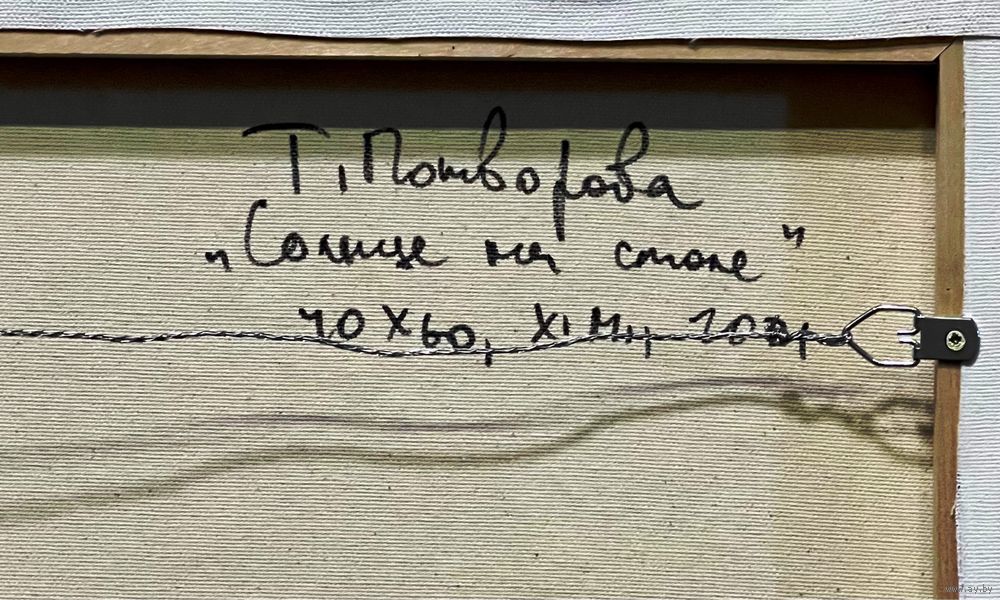 Т. Потворова
„Солнце на столе"
40х60, х/м,
www.ay.by